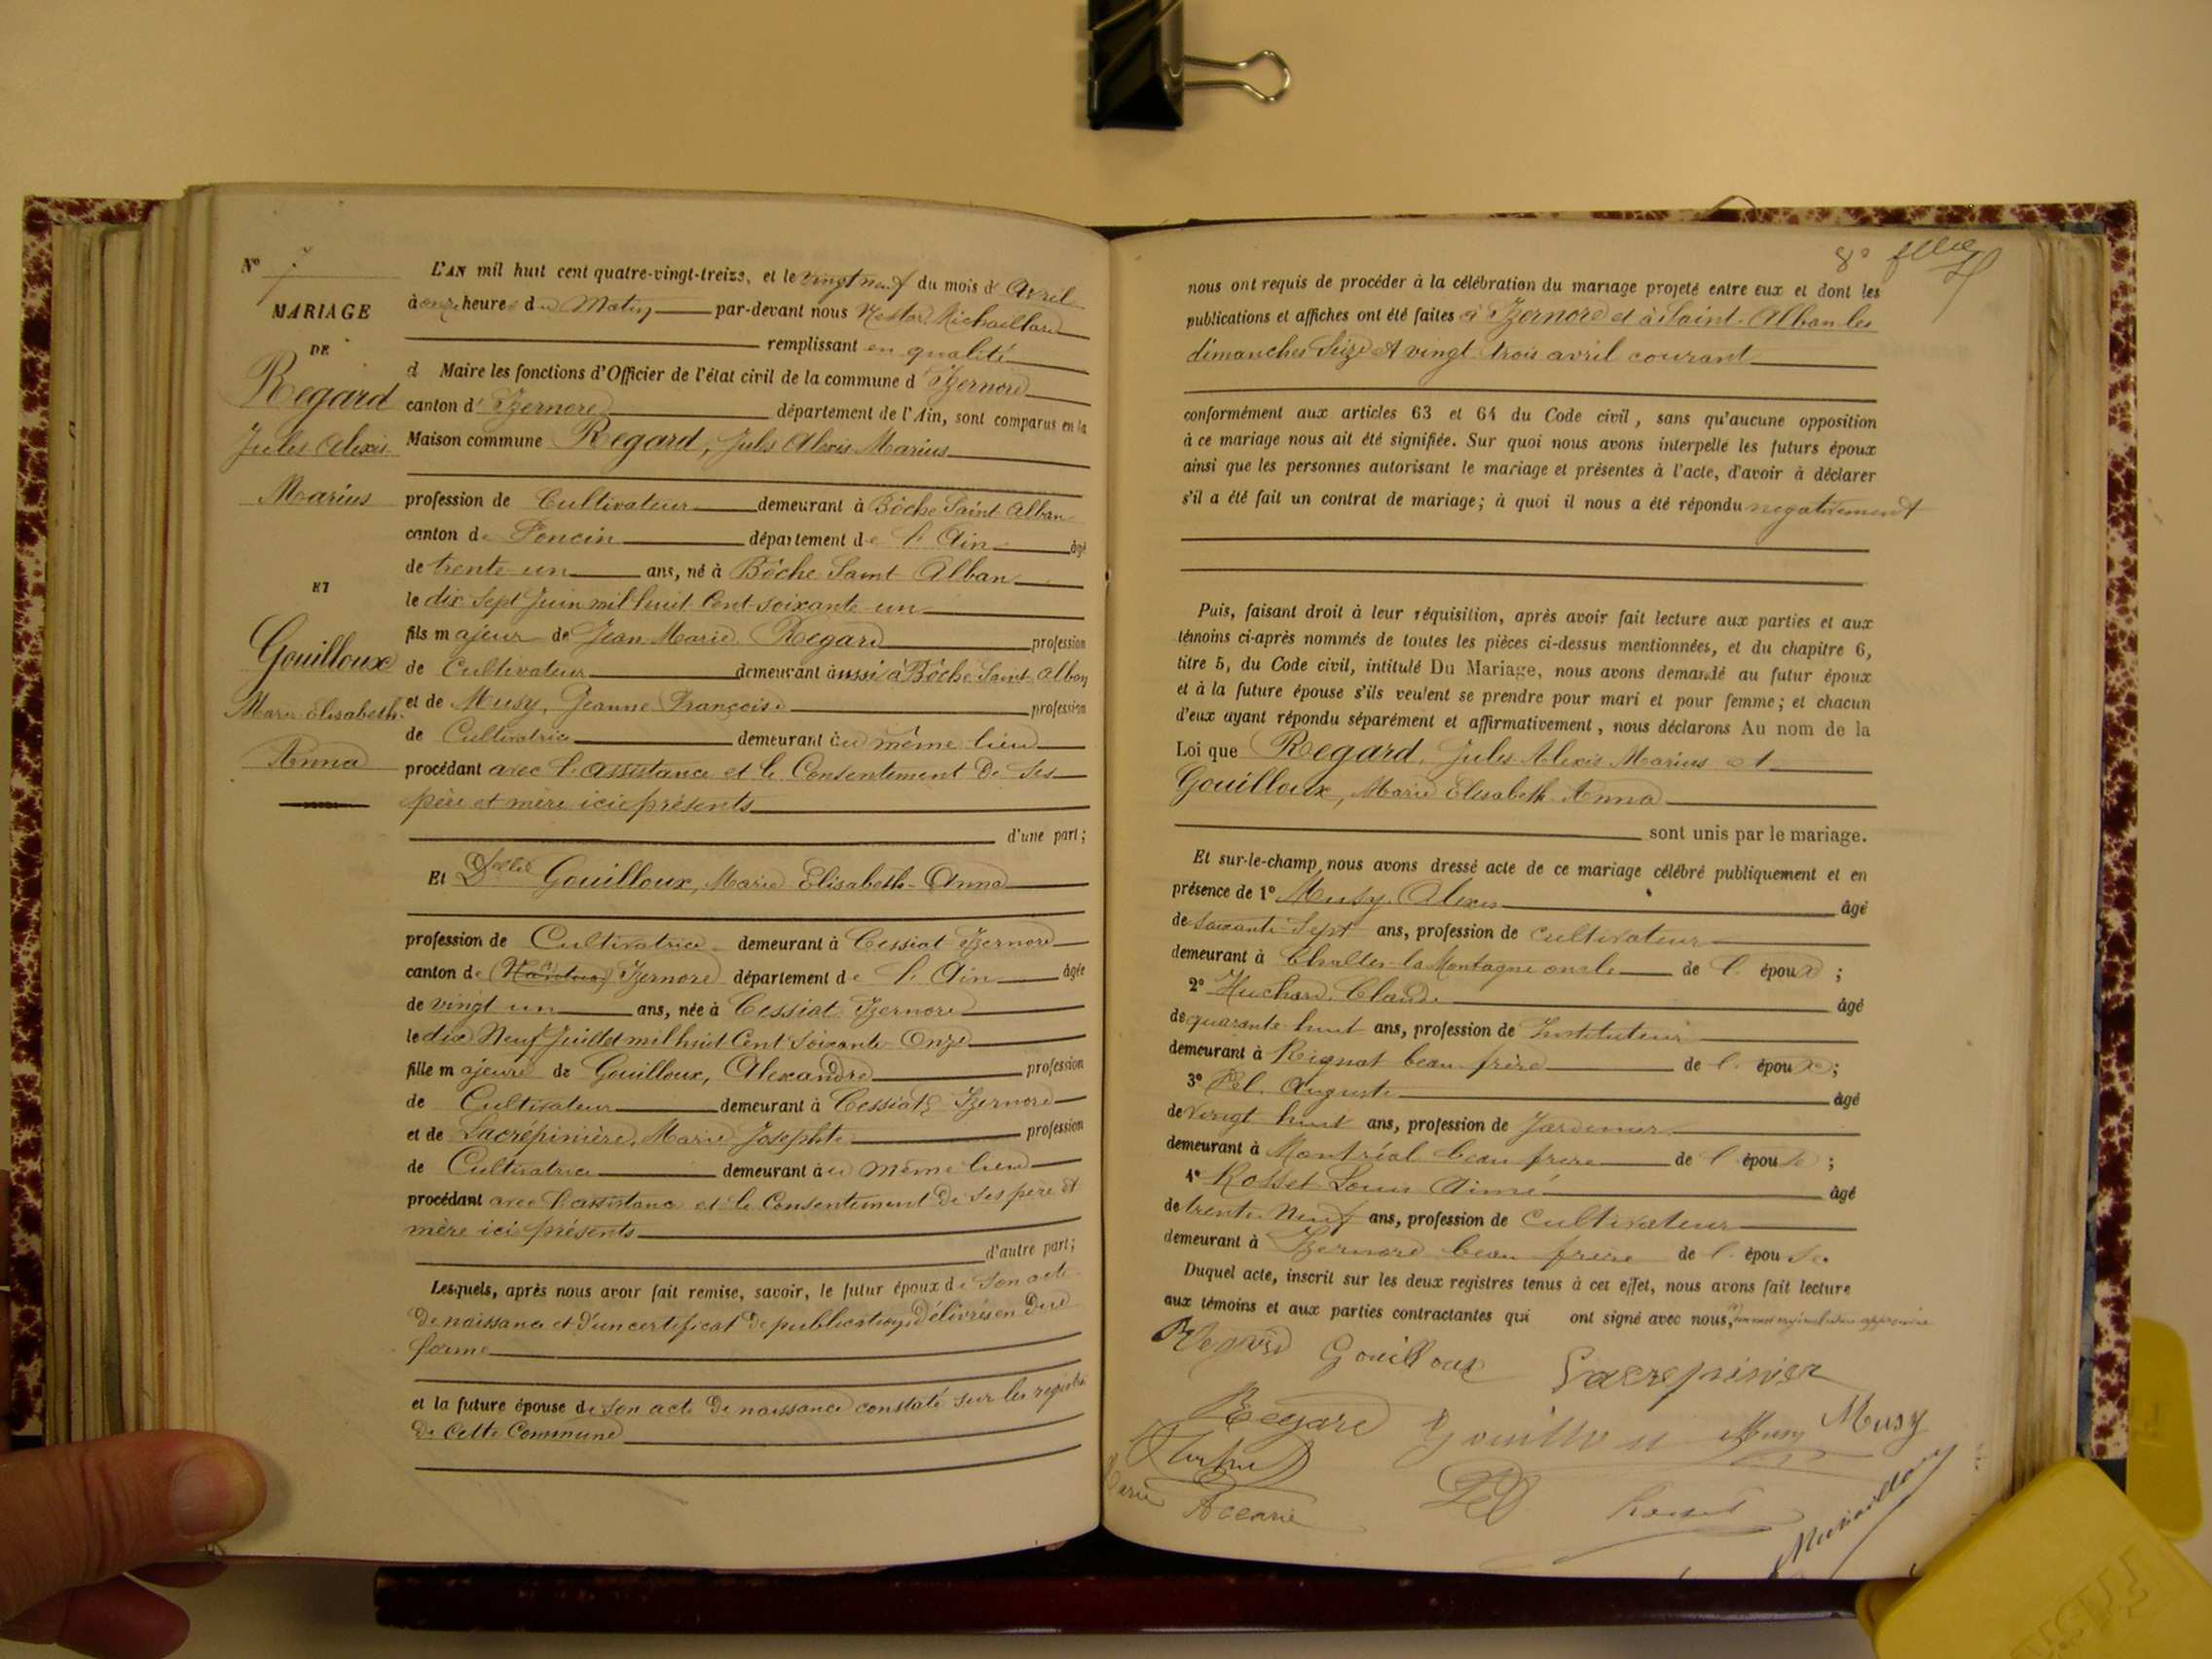 N° 7
MARIAGE
DE
Regard
Jules Alexis
Marius
ET
Gouilloux
Marie Elisabeth
Anna
L'AN mil huit cent quatre-vingt-treize, et le vingt neuf du mois d'Avril
à onze heures du Matin par-devant nous Nestor Michaillard
remplissant en qualité
d Maire les fonctions d'Officier de l'état civil de la commune d'Izernore
canton d'Izernore département de l'Ain, sont comparus en la
Maison commune Regard, Jules Alexis Marius
profession de Cultivateur demeurant à Bôche Saint Alban
canton de Poncin département de l'Ain âgé
de trente un ans, né à Bôche Saint Alban
le dix Sept Juin mil huit Cent soixante un
fils majeur de Jean Marie Regard profession
de Cultivateur demeurant aussi à Bôche Saint Alban
et de Musy, Jeanne Françoise profession
de Cultivatrice demeurant au même lieu
procédant avec l'assistance et le Consentement de ses
père et mère ici présents
d'une part;
Et Delle Gouilloux, Marie Elisabeth-Anna
profession de Cultivatrice demeurant à Cessiat Izernore
canton de Izernore département de l'Ain âgée
de vingt un ans, née à Cessiat Izernore
le dix Neuf Juillet mil huit Cent Soixante Onze
fille majeure de Gouilloux, Alexandre profession
de Cultivateur demeurant à Cessiat, Izernore
et de Lacrépinière, Marie Josephte profession
de Cultivatrice demeurant au même lieu
procédant avec l'assistance et le Consentement de ses père et
mère ici présents
d'autre part;
Lesquels, après nous avoir fait remise, savoir, le futur époux de son acte
de naissance et d'un certificat de publication, délivrés en due
forme
et la future épouse de son acte de naissance constaté sur les registres
de cette Commune
8e flle
nous ont requis de procéder à la célébration du mariage projeté entre eux et dont les
publications et affiches ont été faites à Izernore et à Saint-Alban les
dimanches Seize et vingt trois avril courant
conformément aux articles 63 et 64 du Code civil, sans qu'aucune opposition
à ce mariage nous ait été signifiée. Sur quoi nous avons interpellé les futurs époux
ainsi que les personnes autorisant le mariage et présentes à l'acte, d'avoir à déclarer
s'il a été fait un contrat de mariage; à quoi il nous a été répondu negativement
Puis, faisant droit à leur réquisition, après avoir fait lecture aux parties et aux
témoins ci-après nommés de toutes les pièces ci-dessus mentionnées, et du chapitre 6,
titre 5, du Code civil, intitulé Du Mariage, nous avons demandé au futur époux
et à la future épouse s'ils veulent se prendre pour mari et pour femme; et chacun
d'eux ayant répondu séparément et affirmativement, nous déclarons Au nom de la
Loi que Regard, Jules Alexis Marius et
Gouilloux, Marie Elisabeth Anna
sont unis par le mariage.
Et sur-le-champ nous avons dressé acte de ce mariage célébré publiquement et en
présence de 1° Musy, Alexis âgé
de Soixante Sept ans, profession de cultivateur
demeurant à Challes-la Montagne oncle de l'époux;
2° Huchard, Claude âgé
de quarante huit ans, profession de Instituteur
demeurant à Rignat beau frère de l'époux;
3° Pel Auguste âgé
de vingt huit ans, profession de Jardinier
demeurant à Montréal beau frère de l'épouse;
4° Rosset Louis Aimé âgé
de trente Neuf ans, profession de cultivateur
demeurant à Izernore beau frère de l'épouse.
Duquel acte, inscrit sur les deux registres tenus à cet effet, nous avons fait lecture
aux témoins et aux parties contractantes qui ont signé avec nous,
Regard Gouilloux Lacrepinier
Regard Gouilloux Musy Musy
Accarie
Michaillard